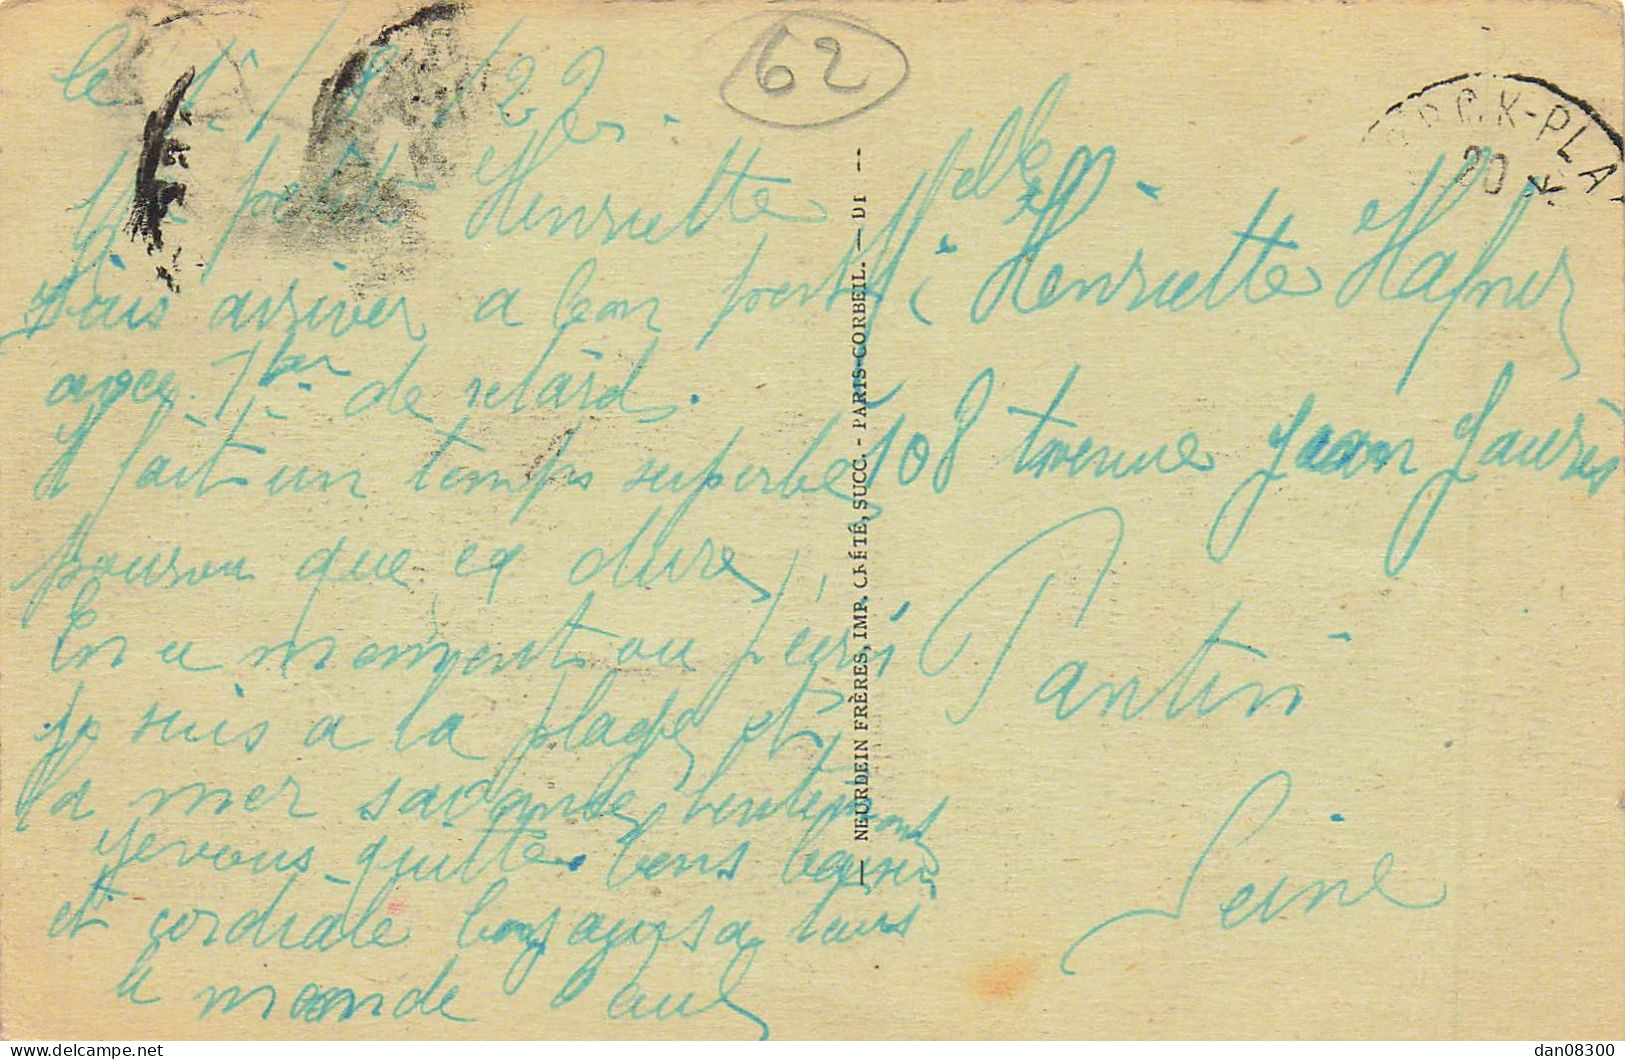 62
le 1er/8/22
Ma petite Henriette
Suis arriver a bon port
avec 1her de retard.
Il fait un temps superbe
pourvu que ca dure,
En ce moment ou j'écris
je suis a la plage et
la mer s'avance lentement
Je vous quitte bons baisers
et cordiale bonjours a tous
le monde Paul
— NEURDEIN FRÈRES, IMP. CRÉTÉ, SUCC. - PARIS-CORBEIL. — DI —
PLA
20
Melle
Henriette Hafner
108 Avenue Jean Jaurès
Pantin
Seine
dan08300